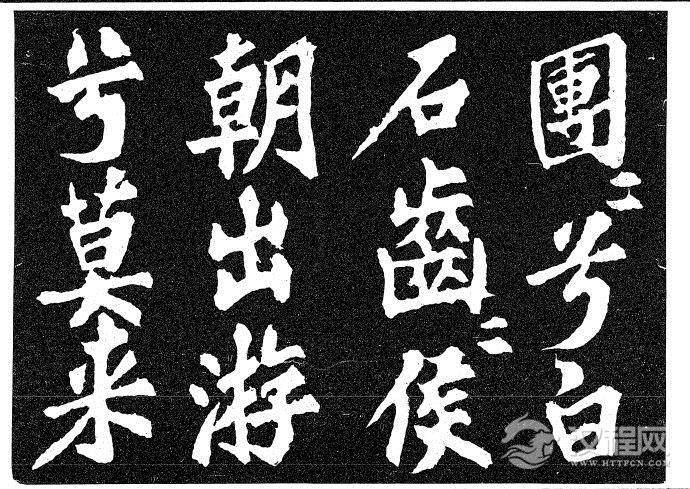 團〻兮白
石齒〻侯
朝出游
兮莫来
汉程网
WWW.HTTPCN.COM